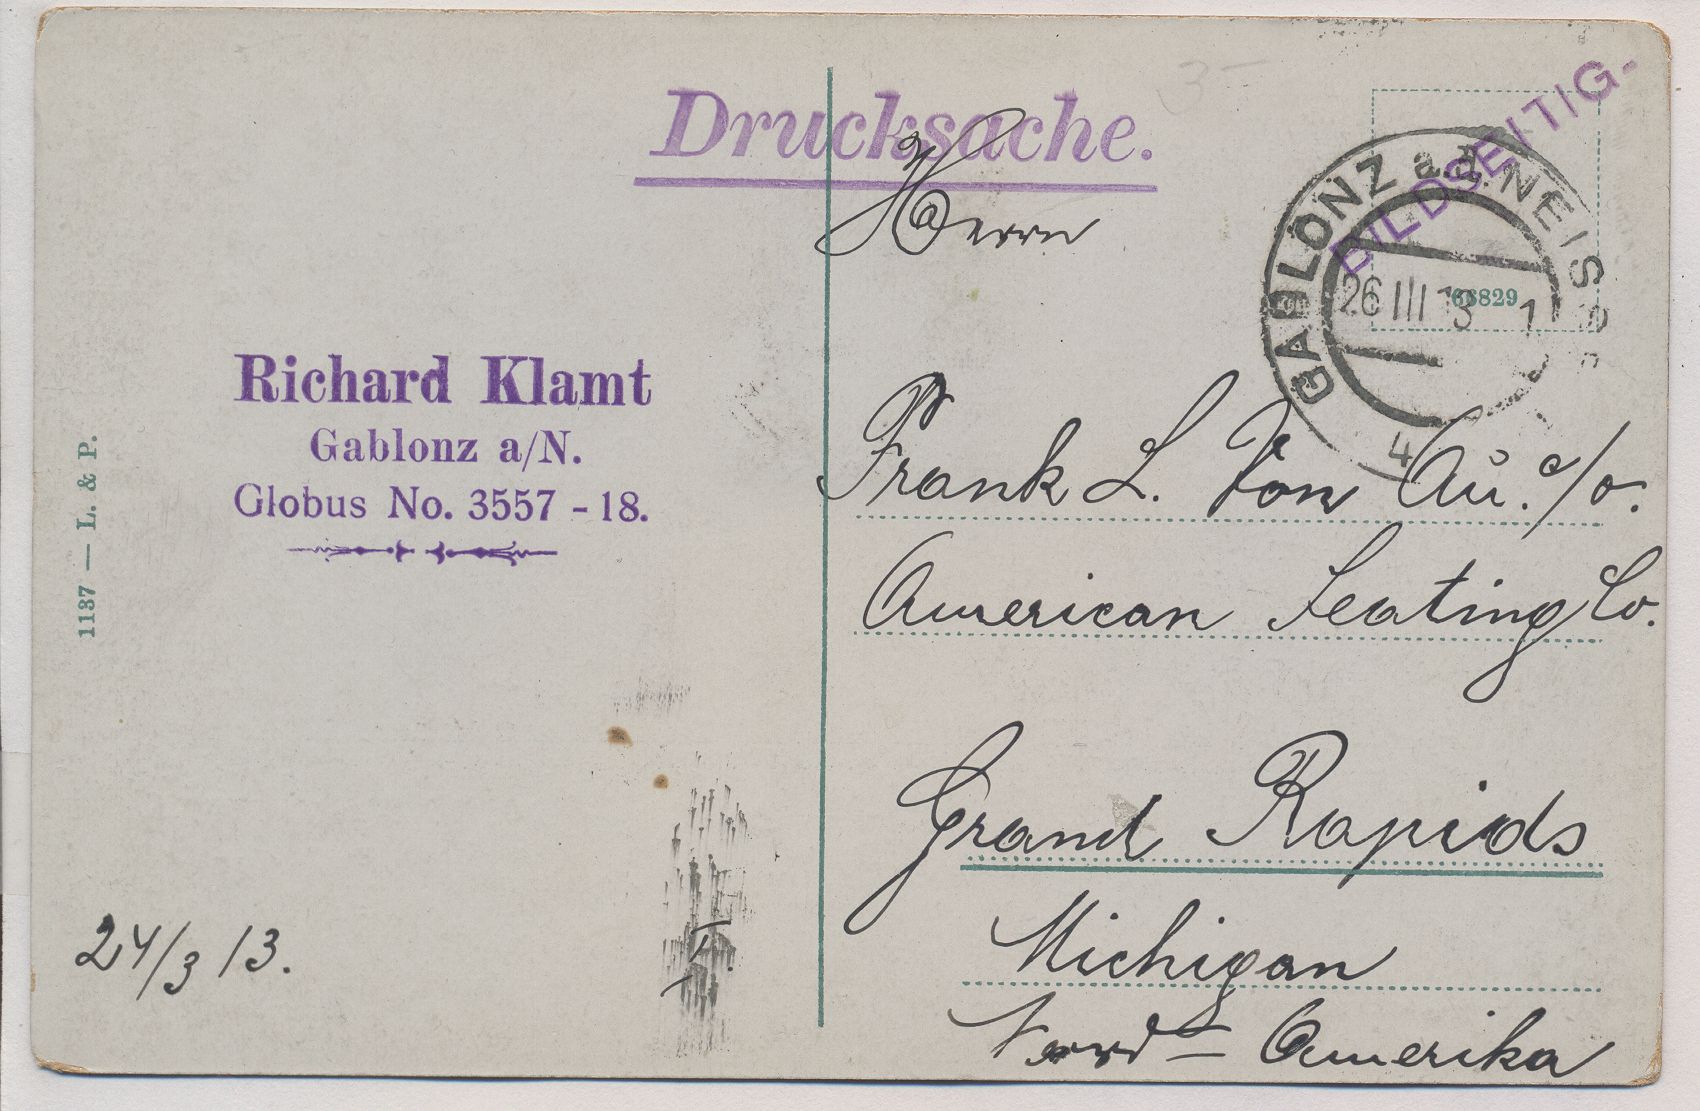 Drucksache.
BILDSEITIG-
GABLONZ a.d. NEISSE
26 III 13 1
4
66829
3-
Herrn
Richard Klamt
Gablonz a/N.
Globus No. 3557 - 18.
1137 — L. & P.
Frank L. Von Au. c/o.
American Seating Co.
Grand Rapids
Michigan
Nord - Amerika
24/3 13.
I.